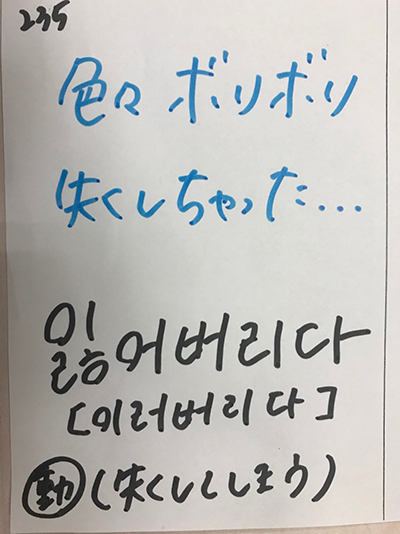 235
色々 ボリボリ
失くしちゃった...
잃어버리다
[이러버리다]
動(失くしてしまう)